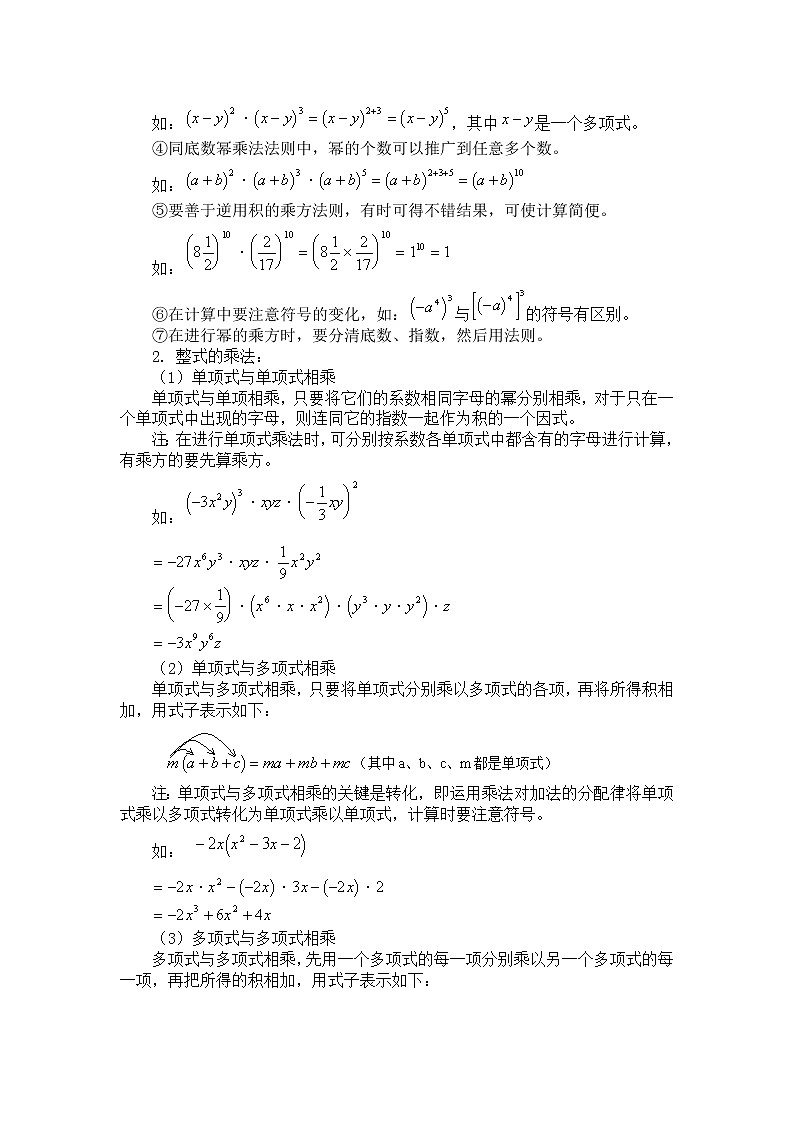 如：(x−y)²·(x−y)³=(x−y)²⁺³=(x−y)⁵，其中x−y是一个多项式。
④同底数幂乘法法则中，幂的个数可以推广到任意多个数。
如：(a+b)²·(a+b)³·(a+b)⁵=(a+b)²⁺³⁺⁵=(a+b)¹⁰
⑤要善于逆用积的乘方法则，有时可得不错结果，可使计算简便。
如：(8 1/2)¹⁰·(2/17)¹⁰=(8 1/2×2/17)¹⁰=1¹⁰=1
⑥在计算中要注意符号的变化，如：(−a⁴)³与[(−a)⁴]³的符号有区别。
⑦在进行幂的乘方时，要分清底数、指数，然后用法则。
2. 整式的乘法：
（1）单项式与单项式相乘
单项式与单项相乘，只要将它们的系数相同字母的幂分别相乘，对于只在一
个单项式中出现的字母，则连同它的指数一起作为积的一个因式。
注：在进行单项式乘法时，可分别按系数各单项式中都含有的字母进行计算，
有乘方的要先算乘方。
如：(−3x²y)³·xyz·(−1/3 xy)²
=−27x⁶y³·xyz·1/9 x²y²
=(−27×1/9)·(x⁶·x·x²)·(y³·y·y²)·z
=−3x⁹y⁶z
（2）单项式与多项式相乘
单项式与多项式相乘，只要将单项式分别乘以多项式的各项，再将所得积相
加，用式子表示如下：
m(a+b+c)=ma+mb+mc（其中a、b、c、m都是单项式）
注：单项式与多项式相乘的关键是转化，即运用乘法对加法的分配律将单项
式乘以多项式转化为单项式乘以单项式，计算时要注意符号。
如：−2x(x²−3x−2)
=−2x·x²−(−2x)·3x−(−2x)·2
=−2x³+6x²+4x
（3）多项式与多项式相乘
多项式与多项式相乘，先用一个多项式的每一项分别乘以另一个多项式的每
一项，再把所得的积相加，用式子表示如下：